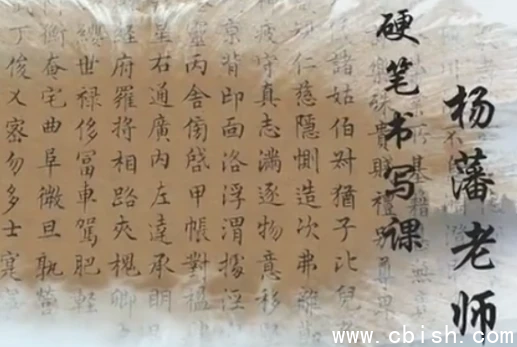 杨藩老师
硬笔书写课
樂殊貴賤禮別尊卑
諸姑伯叔猶子比兒
仁慈隱惻造次弗離
疲守真志滿逐物意移
京背邙面洛浮渭據涇
靈丙舍傍啓甲帳對楹
星右通廣內左達承明
經府羅將相路夾槐卿
纓世禄侈富車駕肥輕
衡奄宅曲阜微旦孰營
丁俊乂密勿多士寔
www.cbish.com